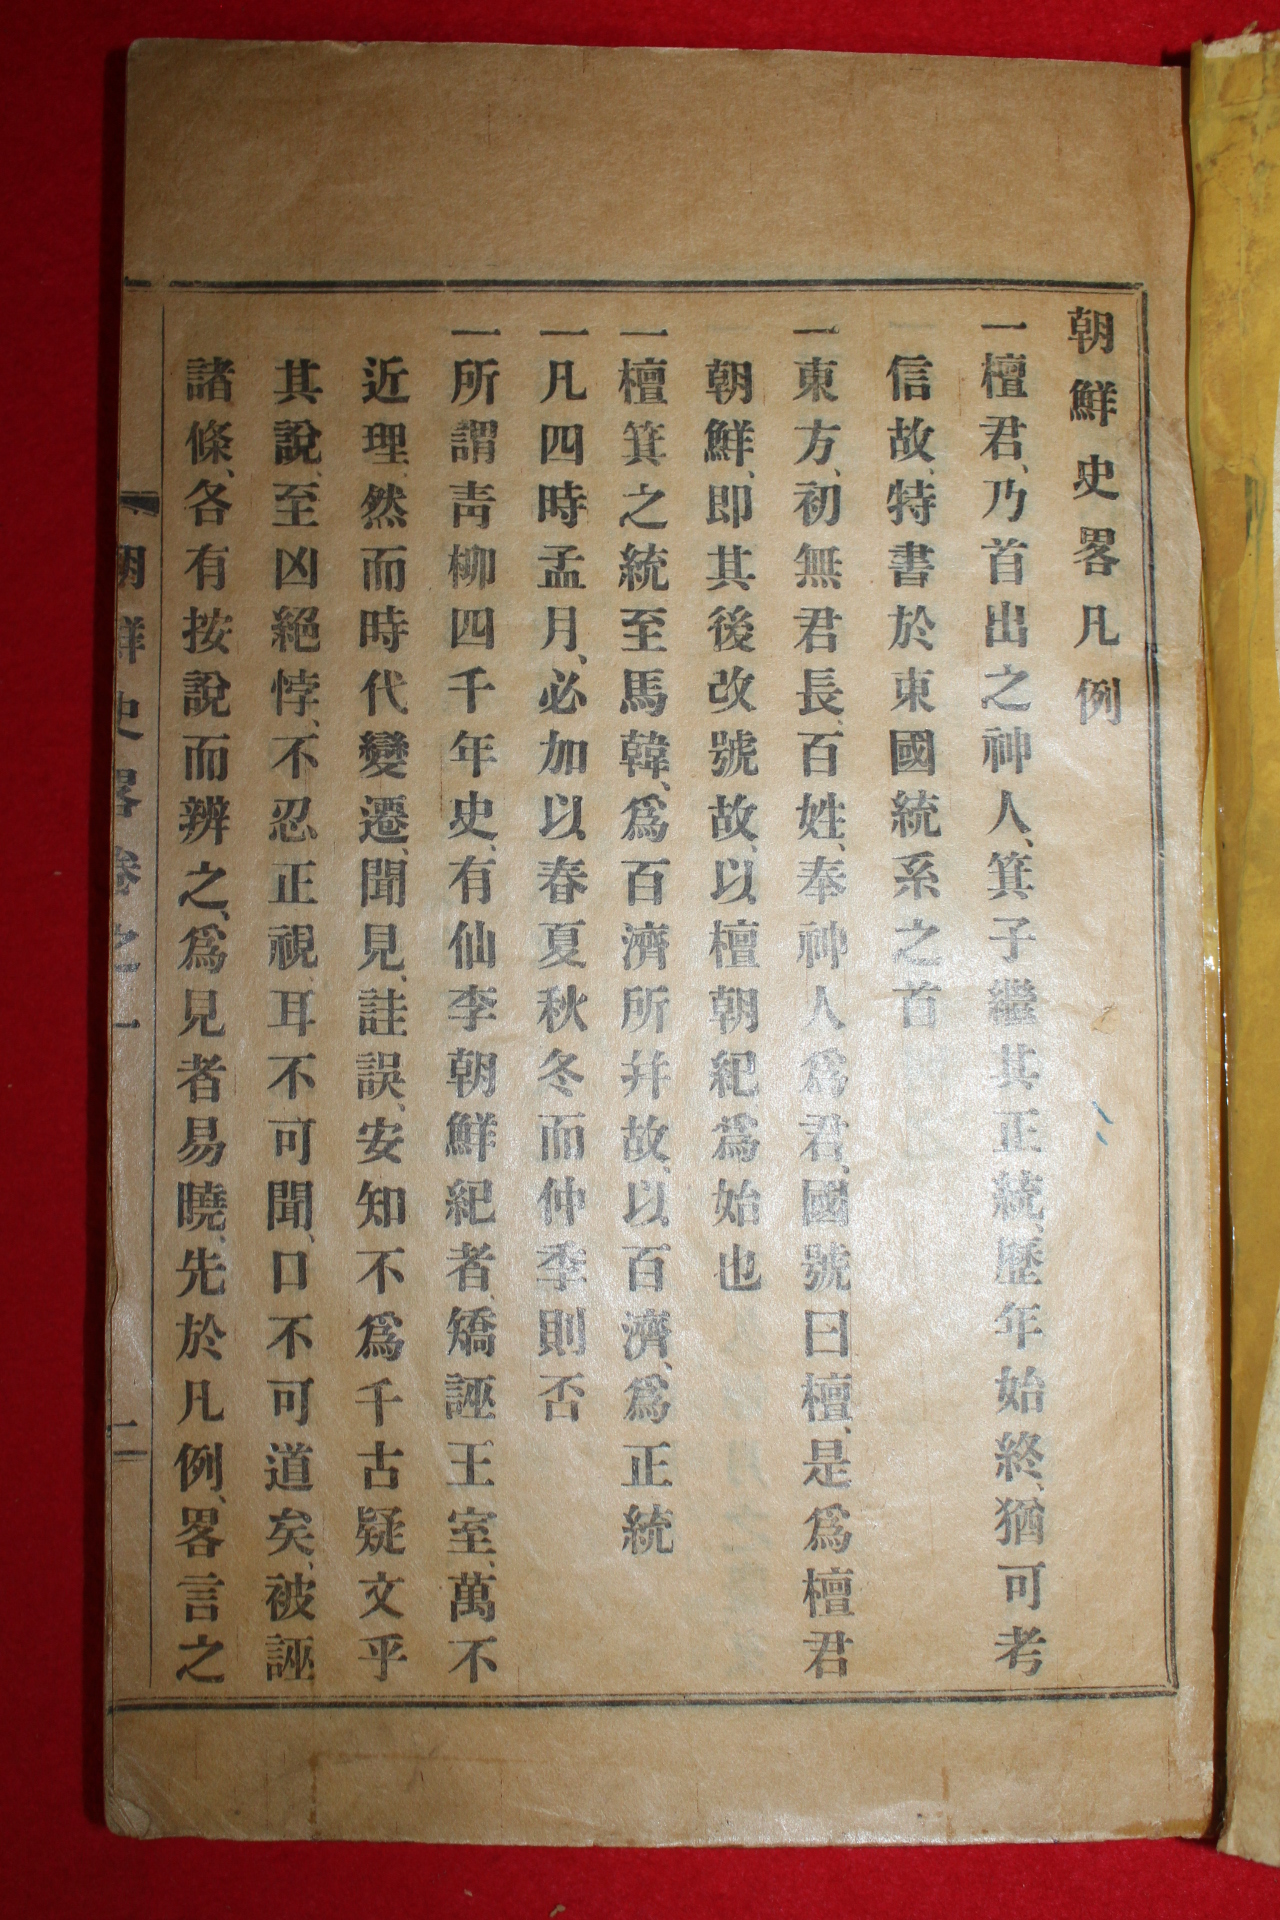 朝鮮史畧凡例
一檀君、乃首出之神人、箕子繼其正統、歷年始終、猶可考
信故、特書於東國統系之首
一東方、初無君長、百姓、奉神人爲君、國號曰檀、是爲檀君
朝鮮、即其後改號故、以檀朝紀爲始也
一檀箕之統至馬韓、爲百濟所幷故、以百濟、爲正統
一凡四時孟月、必加以春夏秋冬而仲季則否
一所謂靑柳四千年史、有仙李朝鮮紀者、矯誣王室、萬不
近理、然而時代變遷、聞見、註誤、安知不爲千古疑文乎
其說、至凶絕悖、不忍正視、耳不可聞、口不可道矣、被誣
諸條、各有按說而辨之、爲見者易曉、先於凡例、畧言之
朝鮮史畧卷之一 二